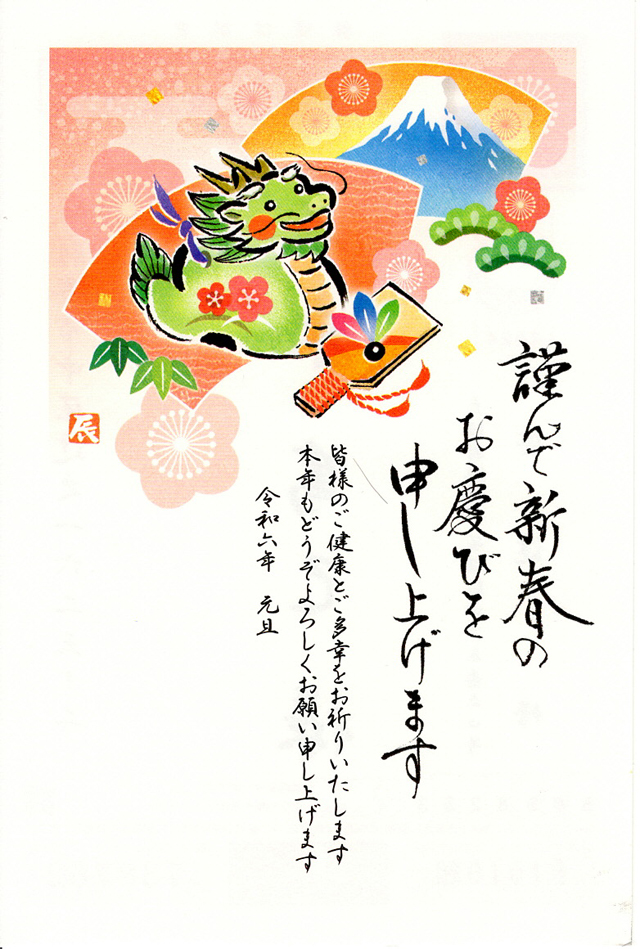 謹んで新春の
お慶びを
申し上げます
皆様のご健康とご多幸をお祈りいたします
本年もどうぞよろしくお願い申し上げます
令和六年　元旦
辰